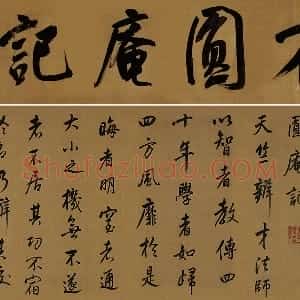 圓庵記
圓庵記
天竺辯才法師
以智者教傳四
十年學者如歸
四方風靡於是
晦者明窒者通
大小之機無不遂
者不居其功不宿
於名乃辭其交
Shufaziliao.com